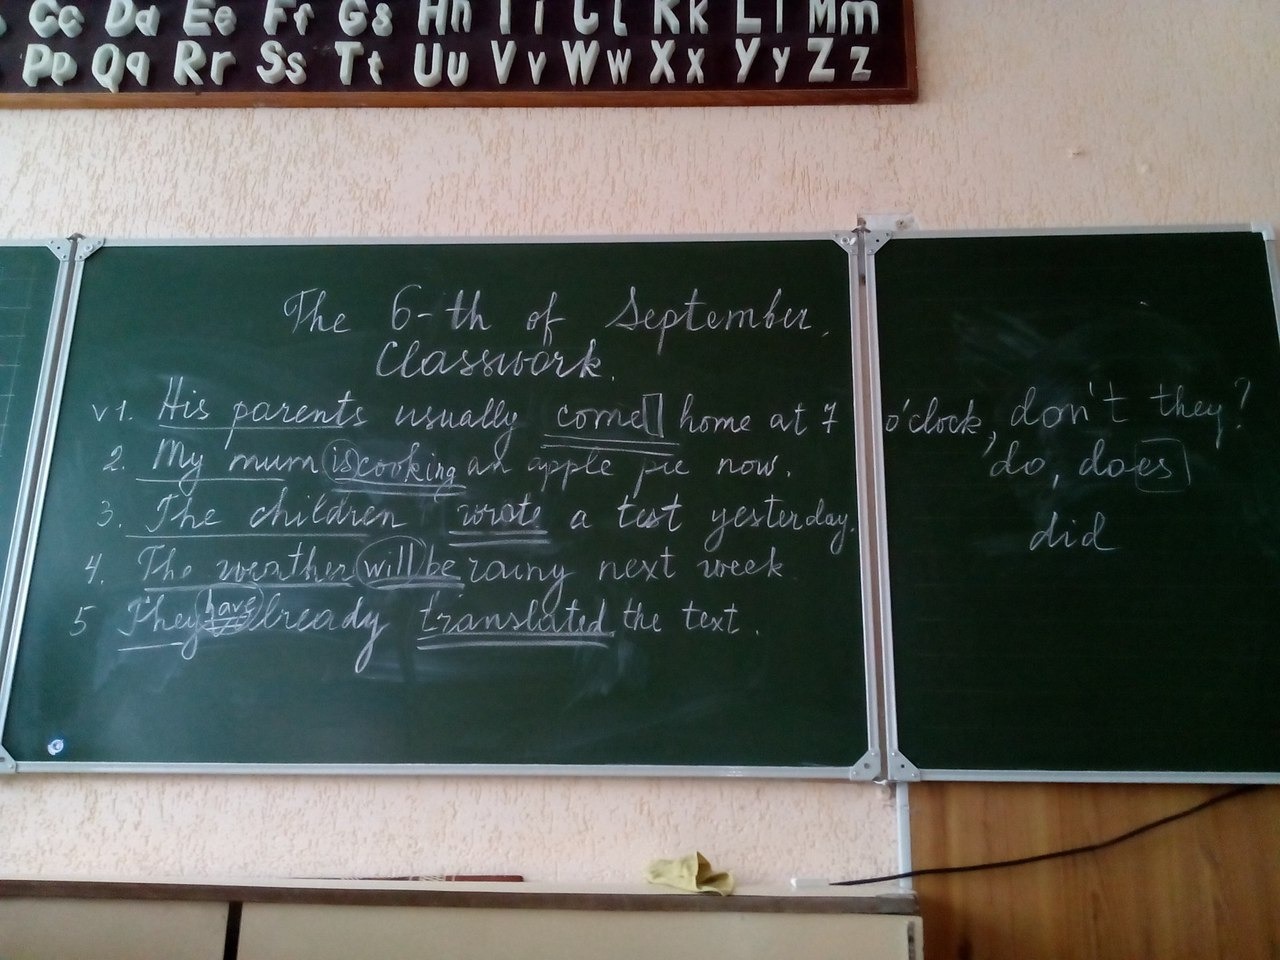 Cc Dd Ee Ff Gg Hh Ii Kk Ll Mm
Pp Qq Rr Ss Tt Uu Vv Ww Xx Yy Zz
The 6-th of September.
Classwork.
v 1. His parents usually come home at 7 o'clock, don't they?
2. My mum is cooking an apple pie now.
do, does
3. The children wrote a test yesterday.
did
4. The weather will be rainy next week
5 They have already translated the text.